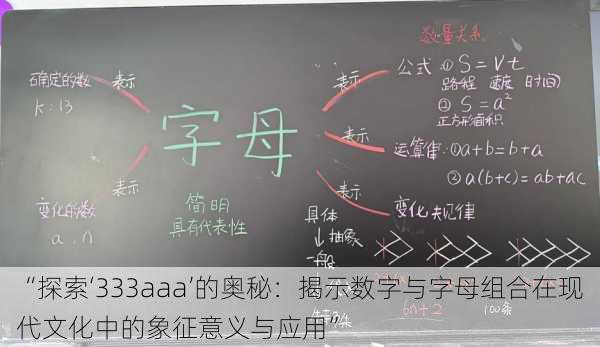 数量关系
确定的数
表示
k:13
字母
表示
公式
① S=vt
路程 速度 时间
② S=a²
正方形面积
表示
运算律:①a+b=b+a
②a(b+c)=ab+ac
表示
变化的数
a.n
简明
具有代表性
表示
变化规律
具体
↓抽象
一般
6n+2
100条
“探索‘333aaa’的奥秘：揭示数字与字母组合在现
代文化中的象征意义与应用”